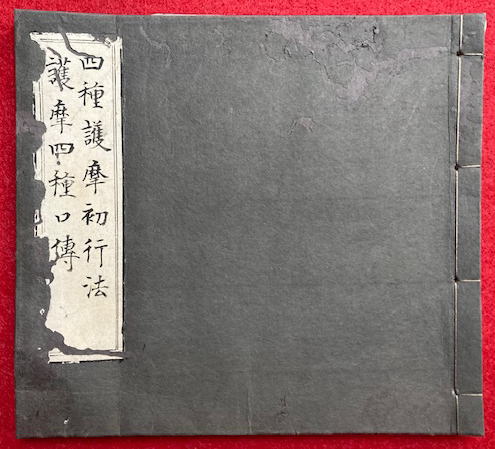 四種護摩初行法
護摩四種口傳